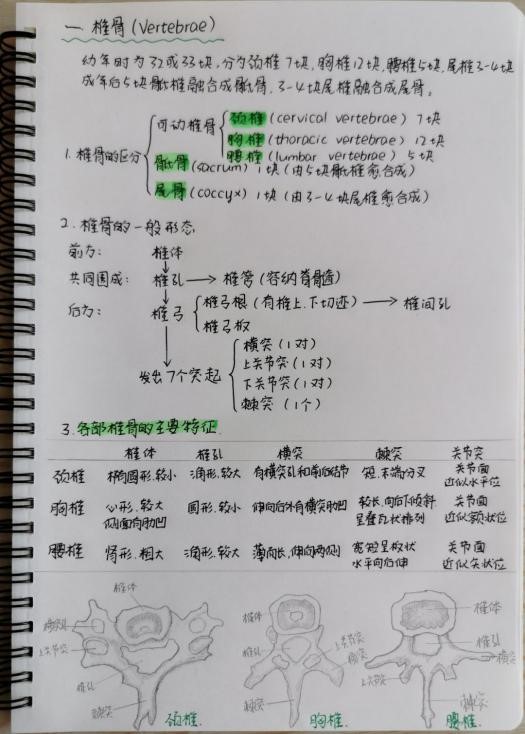 一 椎骨(Vertebrae)
幼年时为32或33块,分为颈椎7块,胸椎12块,腰椎5块,尾椎3-4块
成年后5块骶椎融合成骶骨,3-4块尾椎融合成尾骨。
1.椎骨的区分
可动椎骨
颈椎(cervical vertebrae) 7块
胸椎(thoracic vertebrae) 12块
腰椎(lumbar vertebrae) 5块
骶骨(sacrum) 1块(由5块骶椎愈合成)
尾骨(coccyx) 1块(由3-4块尾椎愈合成)
2.椎骨的一般形态
前方: 椎体
共同围成: 椎孔 → 椎管(容纳脊髓)
后方: 椎弓
椎弓根(有椎上、下切迹) → 椎间孔
椎弓板
发出7个突起
横突(1对)
上关节突(1对)
下关节突(1对)
棘突(1个)
3.各部椎骨的主要特征
椎体 椎孔 横突 棘突 关节突
颈椎 椭圆形,较小 三角形,较大 有横突孔和前后结节 短,末端分叉 关节面近似水平位
胸椎 心形,较大侧面有肋凹 圆形,较小 伸向后外有横突肋凹 较长,向后下倾斜呈叠瓦状排列 关节面近似额状位
腰椎 肾形,粗大 三角形,较大 薄而长,伸向两侧 宽短呈板状水平向后伸 关节面近似矢状位
椎体
横突孔
上关节突
椎孔
棘突
颈椎.
椎体
椎孔
上关节突
横突
棘突
胸椎.
椎体
椎孔
横突
上关节突
棘突
腰椎.